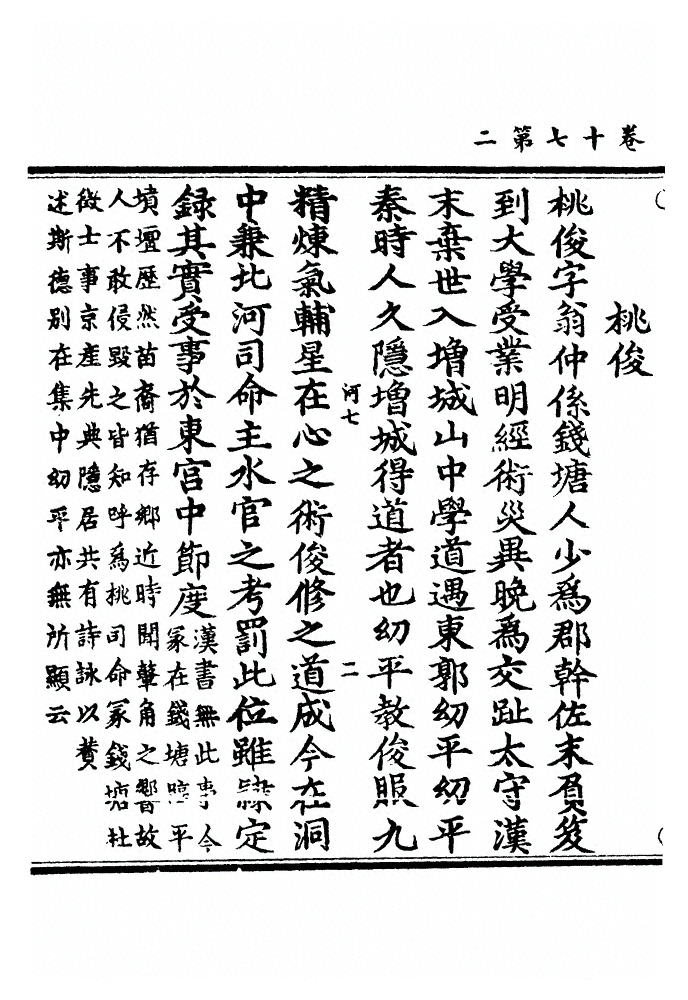 卷十七第二
桃俊
桃俊字翁仲係錢塘人少爲郡幹佐末負笈
到大學受業明經術災異晚爲交趾太守漢
末棄世入增城山中學道遇東郭幼平幼平
秦時人久隱增城得道者也幼平教俊照九
河七 二
精煉氣輔星在心之術俊修之道成今在洞
中兼北河司命主水官之考罰此位雖隸定
録其實受事於東宮中節度
漢書無此事今
冢在錢塘臨平
墳壇歷然苗裔猶存鄉近時聞鼙角之響故
人不敢侵毀之皆知呼爲桃司命冢錢塘杜
徵士事京産先典隱居共有詩詠以贊
述斯德別在集中幼平亦無所顯云